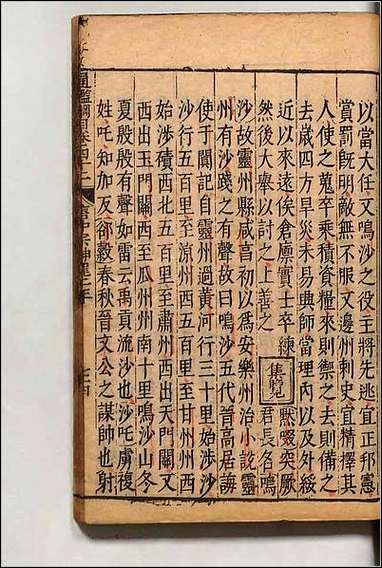 以當大任又鳴沙之役主將先逃宜正邦憲
賞罰旣明敵無不服又邊州刺史宜精擇其
人使之蒐卒乘積資糧來則禦之去則備之
去歲四方旱災未易興師當理內以及外綏
近以來遠俟倉廩實士卒練
然後大舉以討之上善之 集覽 默啜突厥君長名鳴
沙故靈州縣咸亨初以爲安樂州治小說靈
州有沙踐之有聲故曰鳴沙五代晉高居誨
使于闐記自靈州過黃河行三十里始涉沙
沙行五百里至涼州西五百里至甘州州西
始涉磧西北五百里至肅州西出天門關又
西出玉門關西至瓜州州南十里鳴沙山冬
夏殷殷有聲如雷云禹貢流沙也沙吒虜複
姓吒知加反郤縠春秋晉文公之謀帥也射